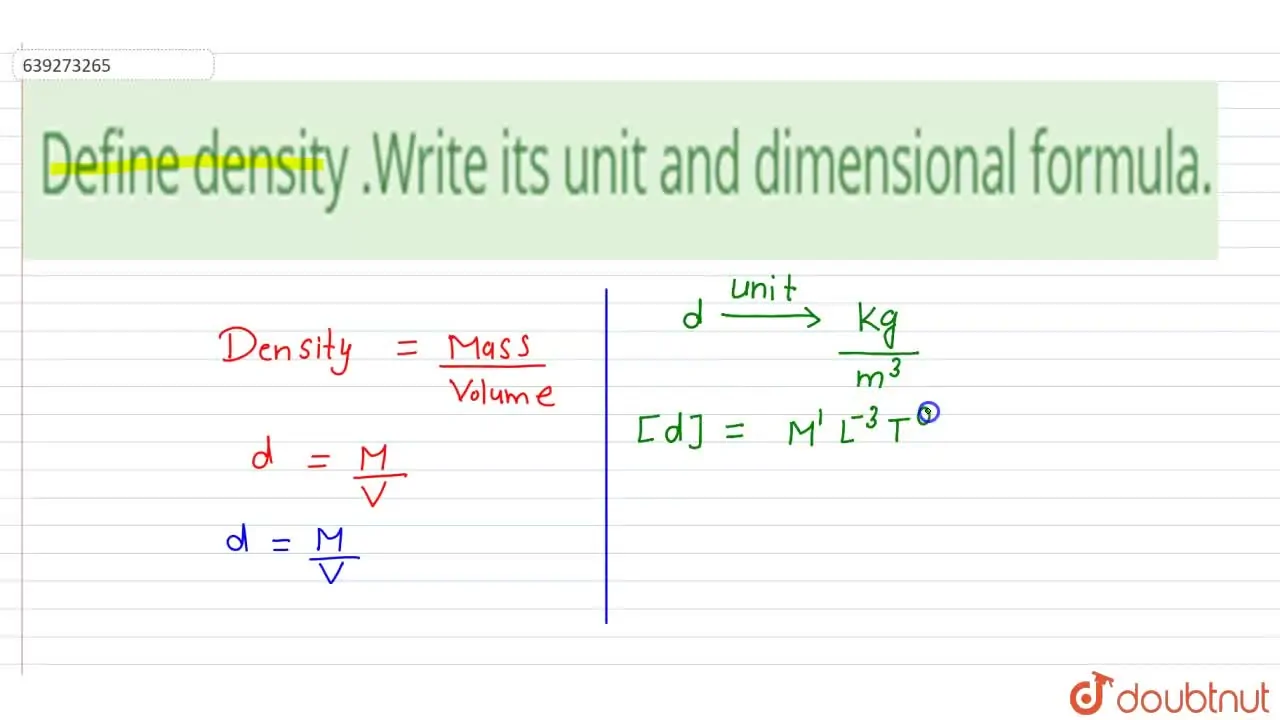 639273265
Define density .Write its unit and dimensional formula.
Density = Mass / Volume
d = M / V
d = M / V
d unit → Kg / m³
[d] = M¹ L⁻³ T⁰
doubtnut